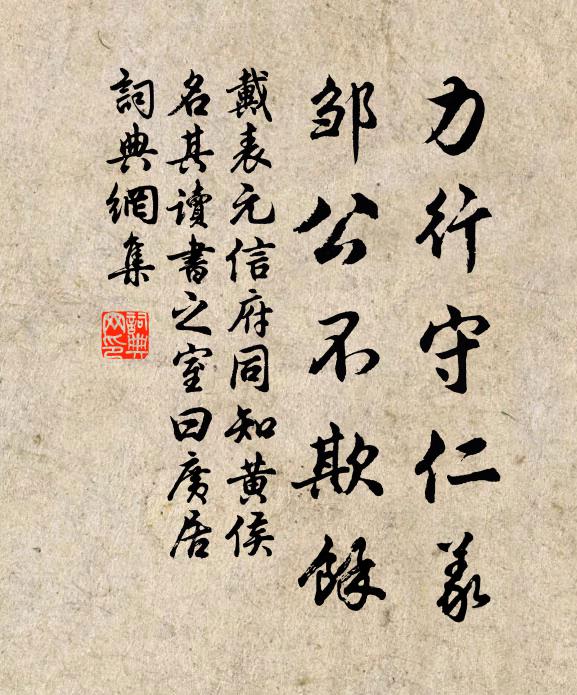 力行守仁義
邹公不欺餘
戴表元信府同知黄侯
名其讀書之室曰廣居
詞典網集
詞典网印